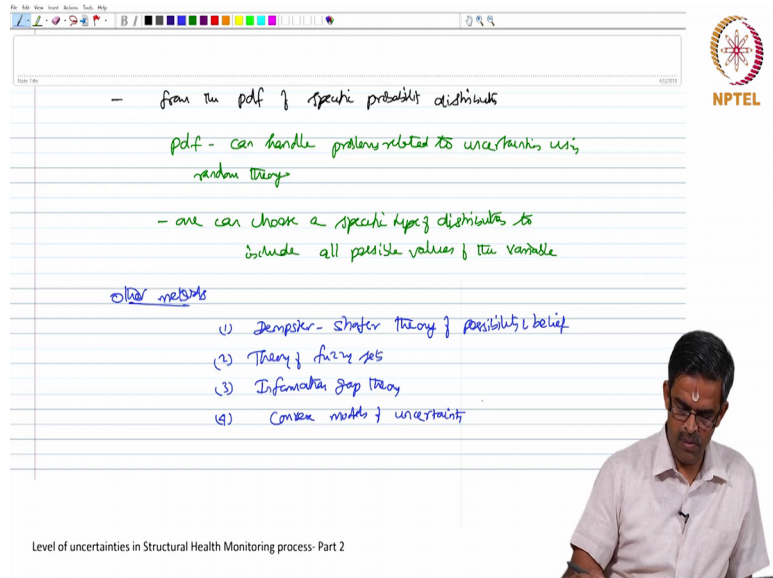 File Edit View Insert Actions Tools Help
Note Title
4/5/2018
NPTEL
- from the pdf of specific probability distributions
pdf - can handle problems related to uncertainties using
random theory
- one can choose a specific type of distribution to
include all possible values of the variable
other methods
(1) Dempster-Shafer theory of possibility & belief
(2) Theory of fuzzy sets
(3) Information gap theory
(4) Convex models of uncertainty
Level of uncertainties in Structural Health Monitoring process- Part 2